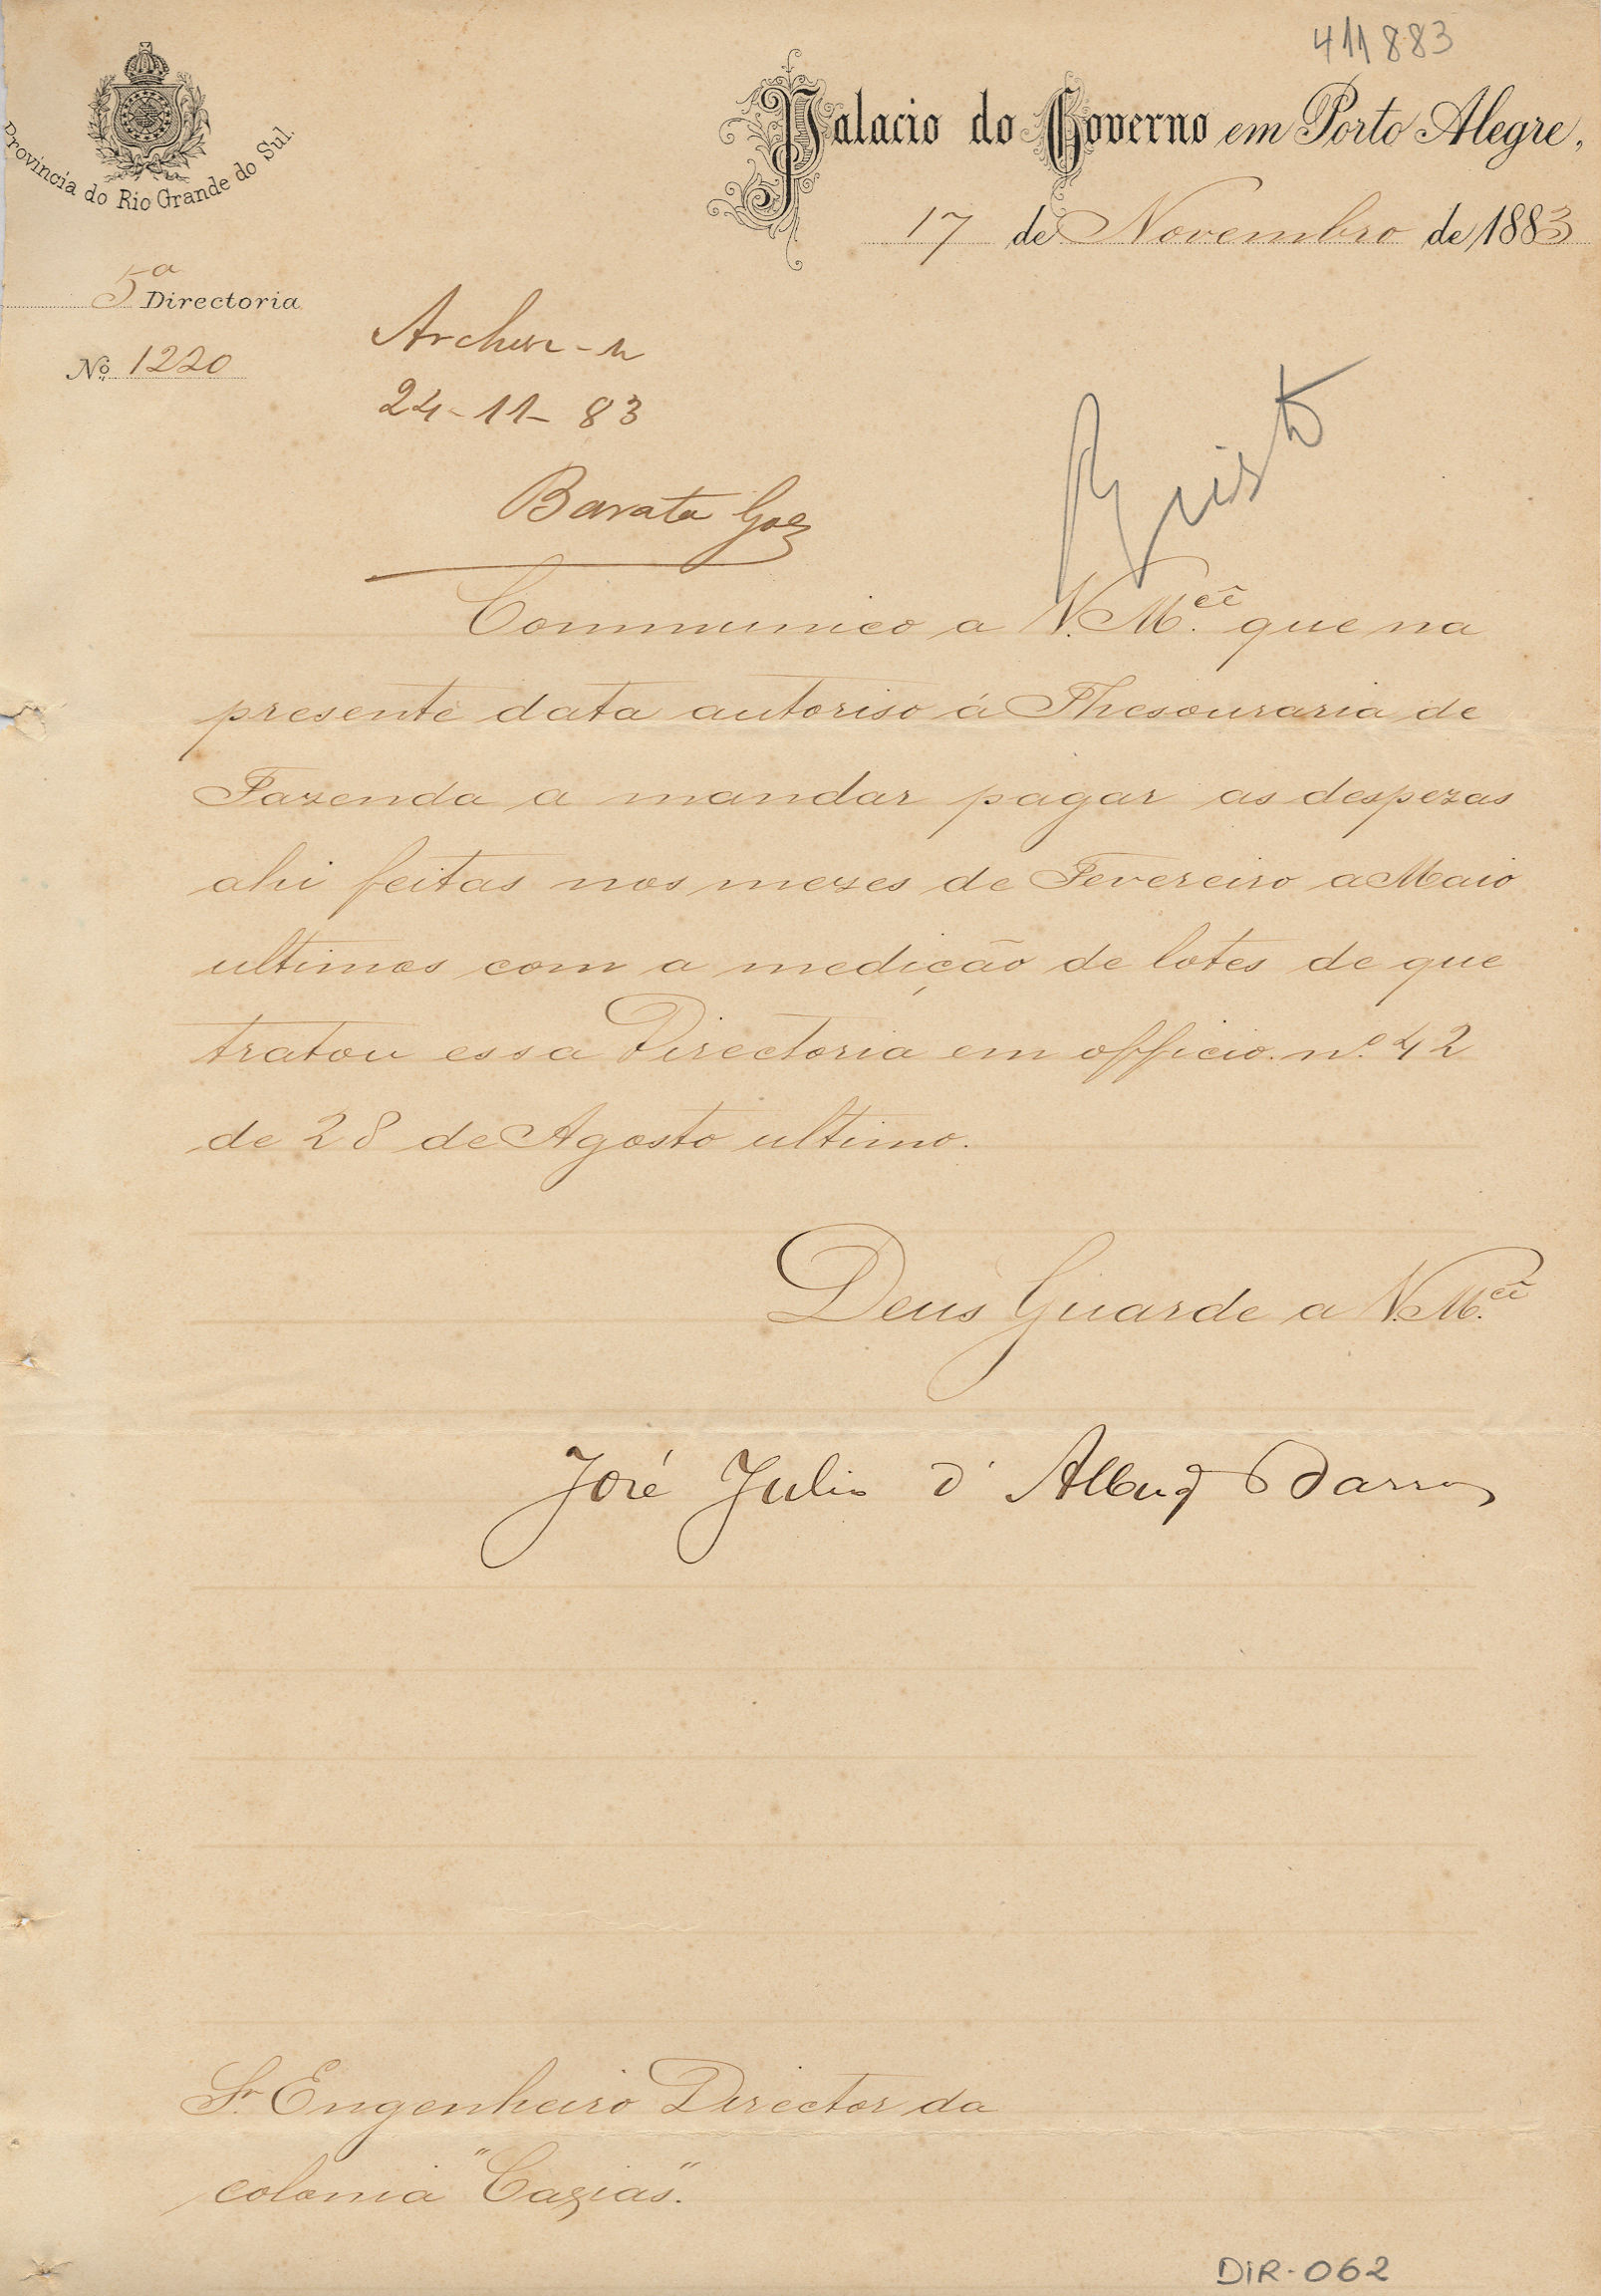 411883
Provincia do Rio Grande do Sul.
Palacio do Governo em Porto Alegre,
17 de Novembro de 1883
5ª Directoria
Nº 1220
Archive-se
24-11-83
Barata Goes
Communico a V. M.cê que na
presente data autoriso á Thesouraria de
Fazenda a mandar pagar as despezas
ahi feitas nos mezes de Fevereiro a Maio
ultimos com a medição de lotes de que
tratou essa Directoria em officio nº 42
de 28 de Agosto ultimo.
Deus Guarde a V. M.cê
José Julio d'Albuq Barros
Sr. Engenheiro Director da
colonia "Caxias".
DIR-062